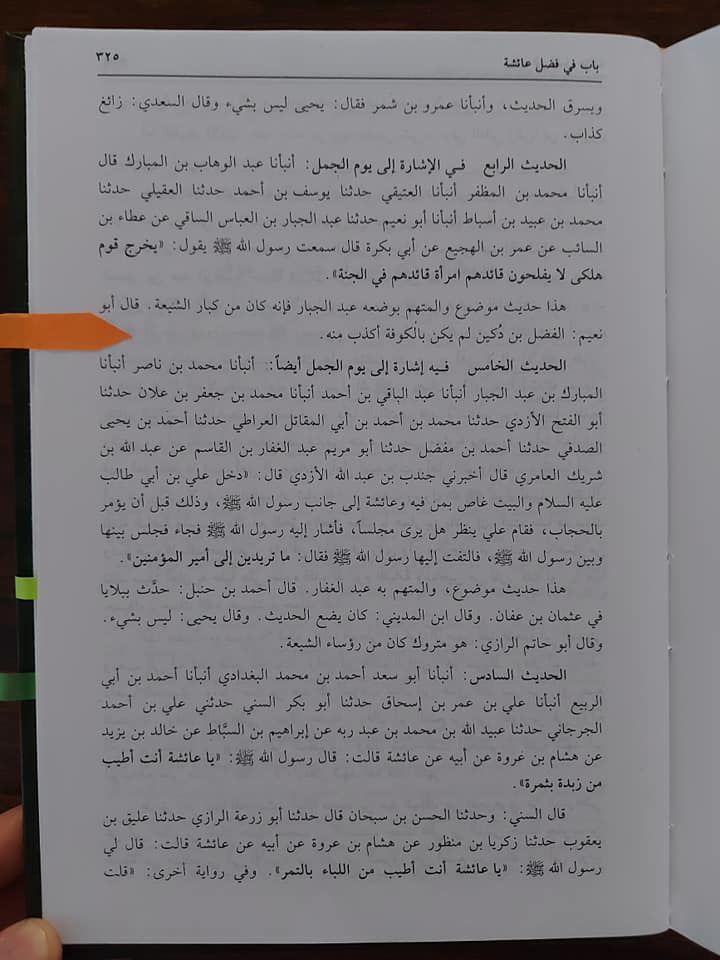 باب في فضل عائشة ٣٢٥
ويسرق الحديث، وأنبأنا عمرو بن شمر فقال: يحيى ليس بشيء وقال السعدي: زائغ
كذاب.
الحديث الرابع في الإشارة إلى يوم الجمل: أنبأنا عبد الوهاب بن المبارك قال
أنبأنا محمد بن المظفر أنبأنا العتيقي حدثنا يوسف بن أحمد حدثنا العقيلي حدثنا
محمد بن عبيد بن أسباط أنبأنا أبو نعيم حدثنا عبد الجبار بن العباس الساقي عن عطاء بن
السائب عن عمر بن الهجيع عن أبي بكرة قال سمعت رسول الله ﷺ يقول: «يخرج قوم
هلكى لا يفلحون قائدهم امرأة قائدهم في الجنة».
هذا حديث موضوع والمتهم بوضعه عبد الجبار فإنه كان من كبار الشيعة. قال أبو
نعيم: الفضل بن دُكين لم يكن بالكوفة أكذب منه.
الحديث الخامس فيه إشارة إلى يوم الجمل أيضاً: أنبأنا محمد بن ناصر أنبأنا
المبارك بن عبد الجبار أنبأنا عبد الباقي بن أحمد أنبأنا محمد بن جعفر بن علان حدثنا
أبو الفتح الأزدي حدثنا محمد بن أحمد بن أبي المقاتل العراطي حدثنا أحمد بن يحيى
الصدفي حدثنا أحمد بن مفضل حدثنا أبو مريم عبد الغفار بن القاسم عن عبد الله بن
شريك العامري قال أخبرني جندب بن عبد الله الأزدي قال: «دخل علي بن أبي طالب
عليه السلام والبيت غاص بمن فيه وعائشة إلى جانب رسول الله ﷺ، وذلك قبل أن يؤمر
بالحجاب، فقام علي ينظر هل يرى مجلساً، فأشار إليه رسول الله ﷺ فجاء فجلس بينها
وبين رسول الله ﷺ، فالتفت إليها رسول الله ﷺ فقال: ما تريدين إلى أمير المؤمنين».
هذا حديث موضوع، والمتهم به عبد الغفار. قال أحمد بن حنبل: حدَّث ببلايا
في عثمان بن عفان. وقال ابن المديني: كان يضع الحديث. وقال يحيى: ليس بشيء.
وقال أبو حاتم الرازي: هو متروك كان من رؤساء الشيعة.
الحديث السادس: أنبأنا أبو سعد أحمد بن محمد البغدادي أنبأنا أحمد بن أبي
الربيع أنبأنا علي بن عمر بن إسحاق حدثنا أبو بكر السني حدثني علي بن أحمد
الجرجاني حدثنا عبيد الله بن محمد بن عبد ربه عن إبراهيم بن السَّباط عن خالد بن يزيد
عن هشام بن عروة عن أبيه عن عائشة قالت: قال رسول الله ﷺ: «يا عائشة أنت أطيب
من زبدة بثمرة».
قال السني: وحدثنا الحسن بن سبحان قال حدثنا أبو زرعة الرازي حدثنا عليق بن
يعقوب حدثنا زكريا بن منظور عن هشام بن عروة عن أبيه عن عائشة قالت: قال لي
رسول الله ﷺ: «يا عائشة أنت أطيب من اللباء بالتمر». وفي رواية أخرى: «قلت